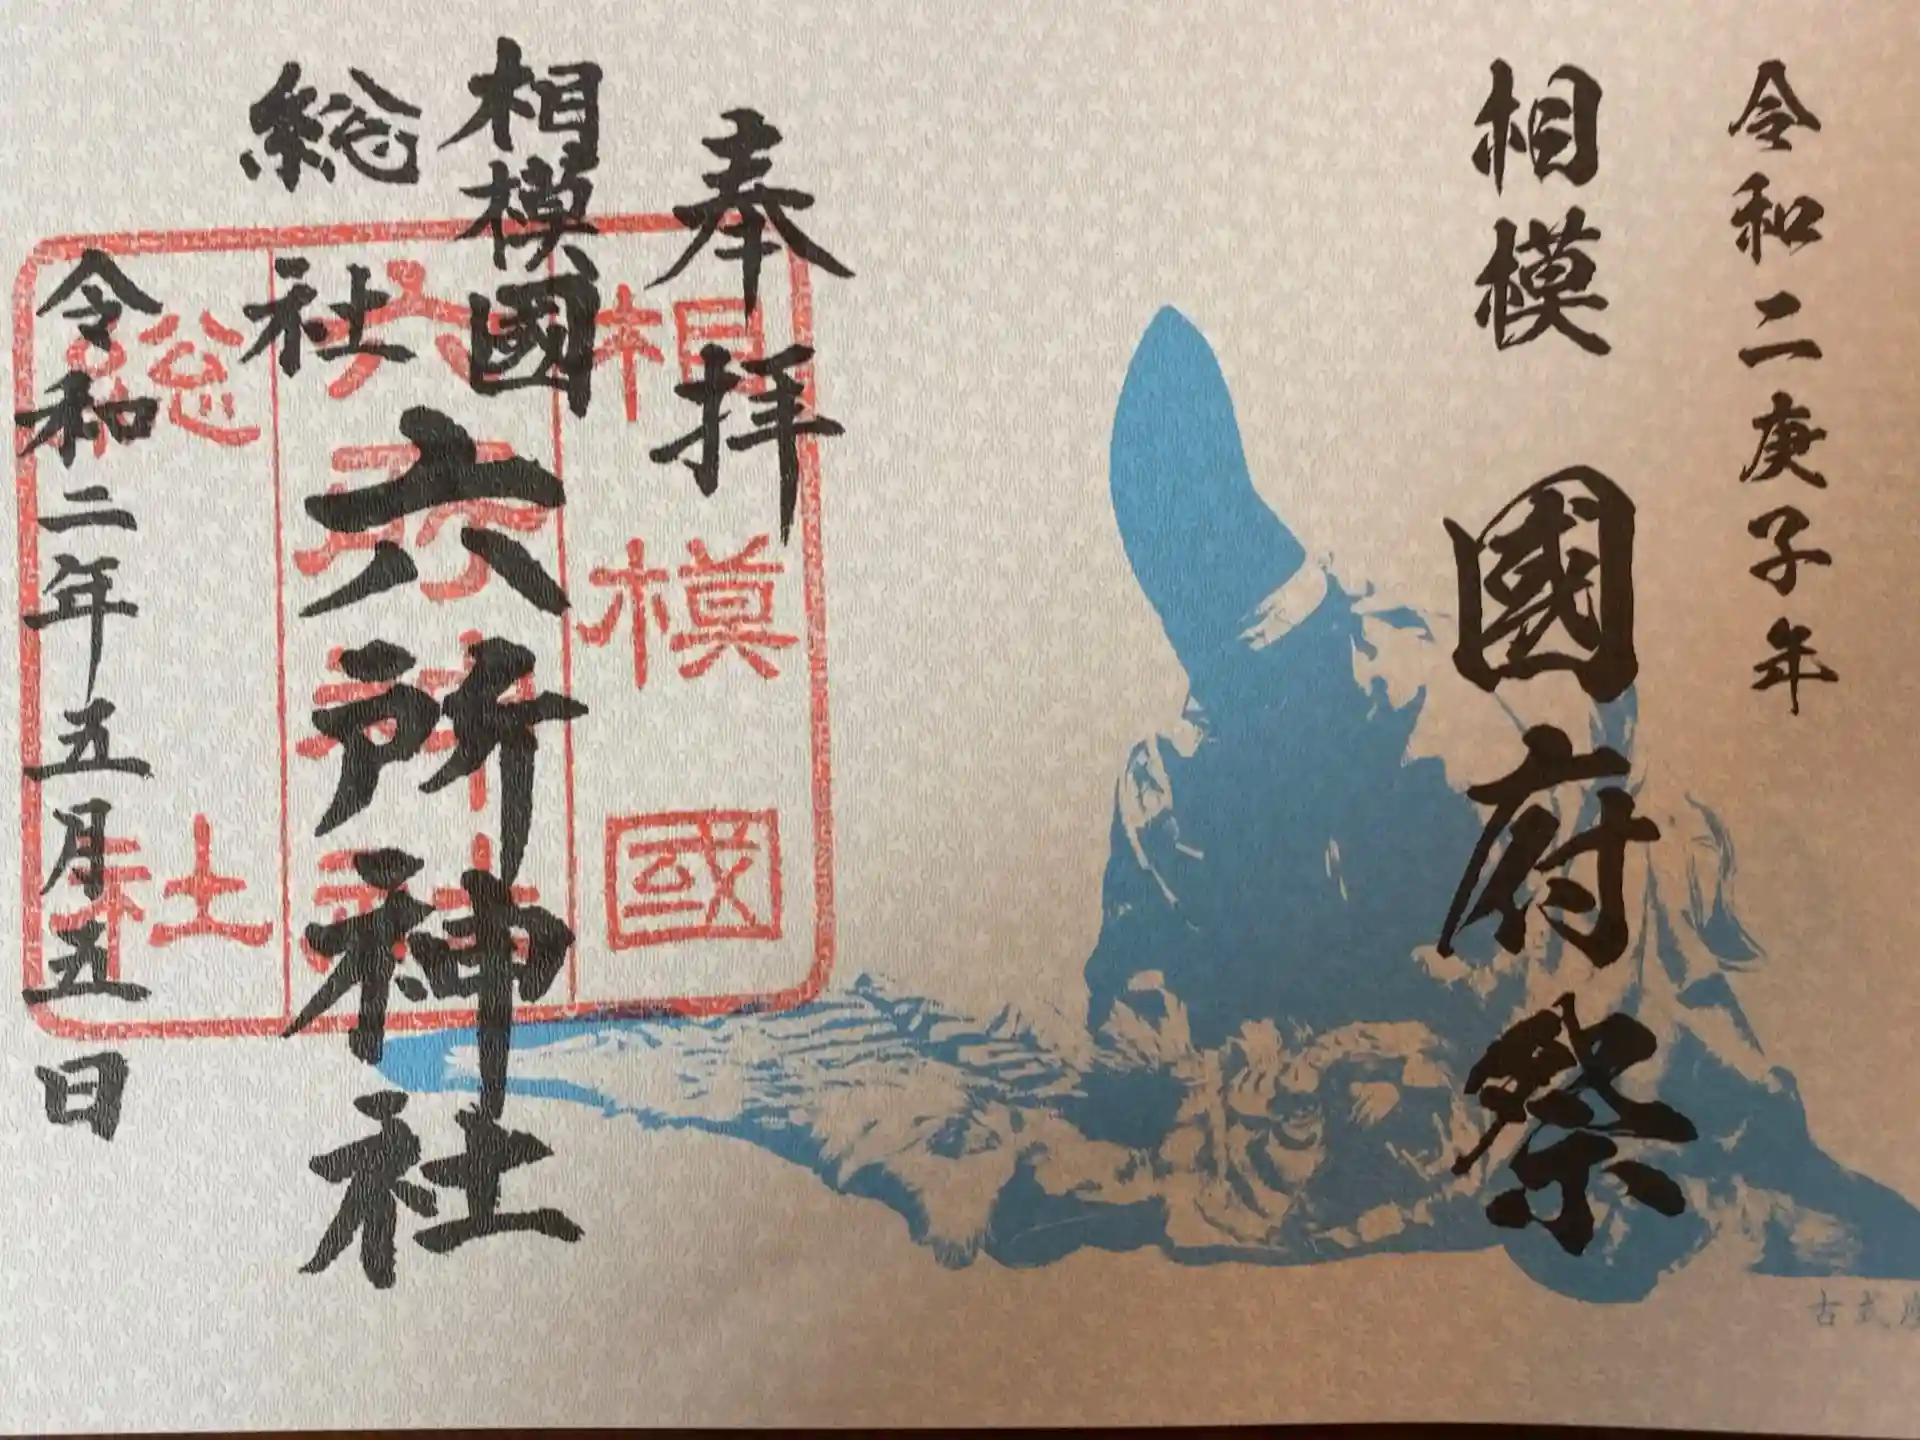 令和二庚子年
相模國府祭
奉拝
相模國
総社
六所神社
令和二年五月五日
相模國
六所神社
総社
古式